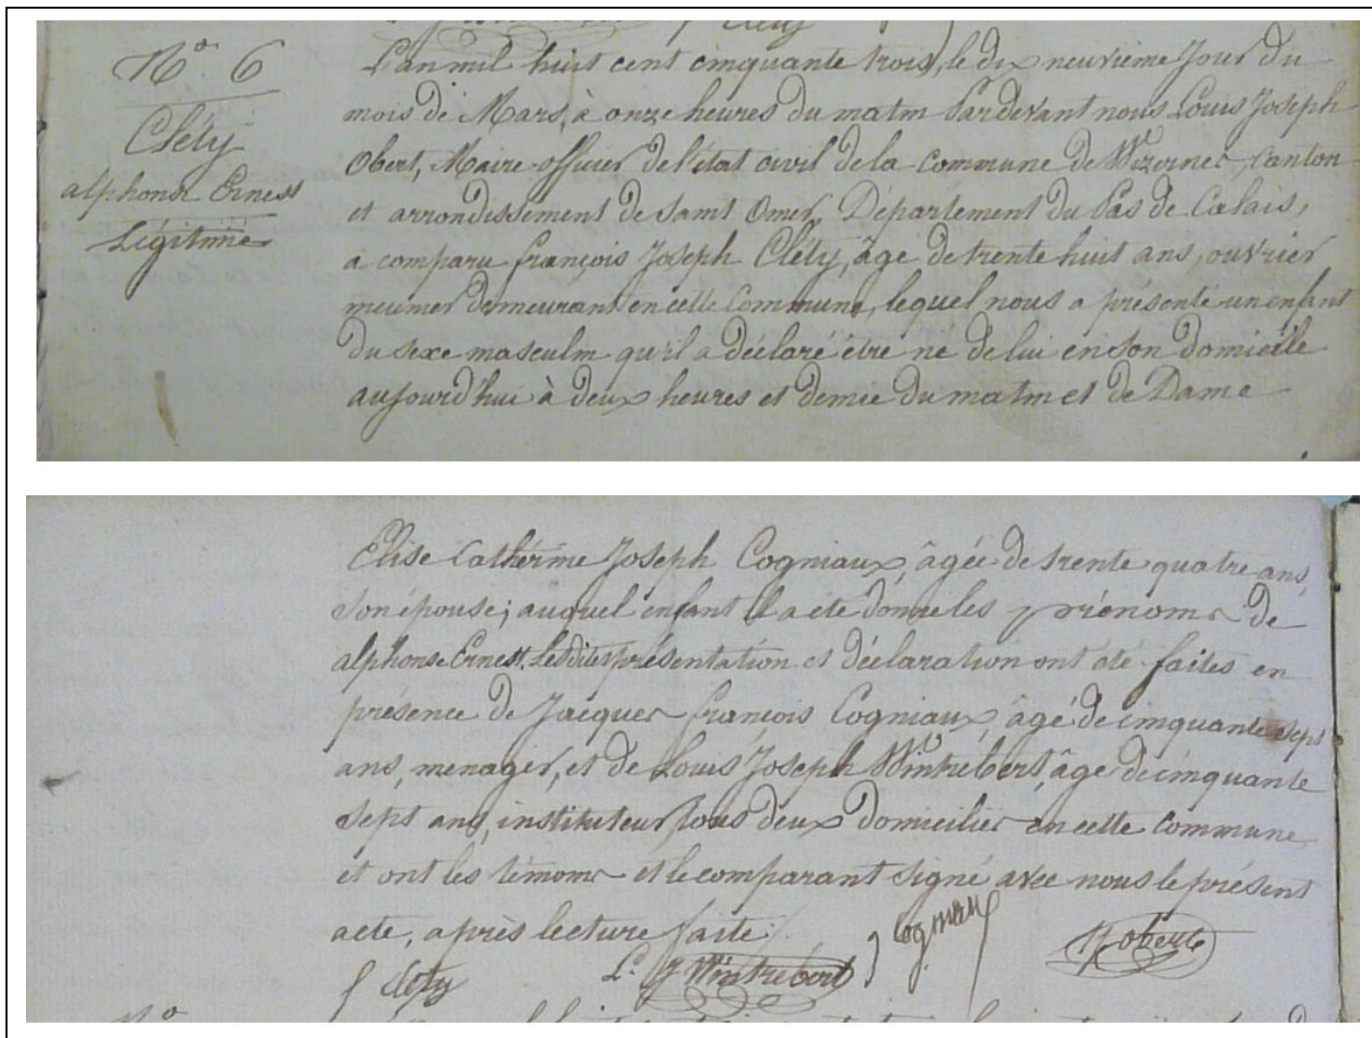 N° 6
Cléty
alphonse Ernest
Légitime
L'an mil huit cent cinquante trois, le dix neuvième Jour du
mois de Mars, à onze heures du matin Pardevant nous Louis Joseph
Obert, Maire officier de l'état civil de la commune de Wizernes, Canton
et arrondissement de Saint Omer, Département du Pas de Calais,
a comparu françois Joseph Cléty, âgé de trente huit ans, ouvrier
meunier demeurant en cette Commune, lequel nous a présenté un enfant
du sexe masculin qu'il a déclaré être né de lui en son domicile
aujourd'hui à deux heures et demie du matin et de Dame
Elise Catherine Joseph Cogniaux, âgée de trente quatre ans,
son épouse; auquel enfant il a été donné les prénoms de
alphonse Ernest. Lesdites présentation et déclaration ont été faites en
présence de Jacques françois Cogniaux, âgé de cinquante sept
ans, menager, et de Louis Joseph Wintrebert, âgé de cinquante
sept ans, instituteur tous deux domiciliés en cette commune
et ont les témoins et le comparant signé avec nous le présent
acte, après lecture faite.
f Cléty L. J Wintrebert J f Cogniaux Obert
N°